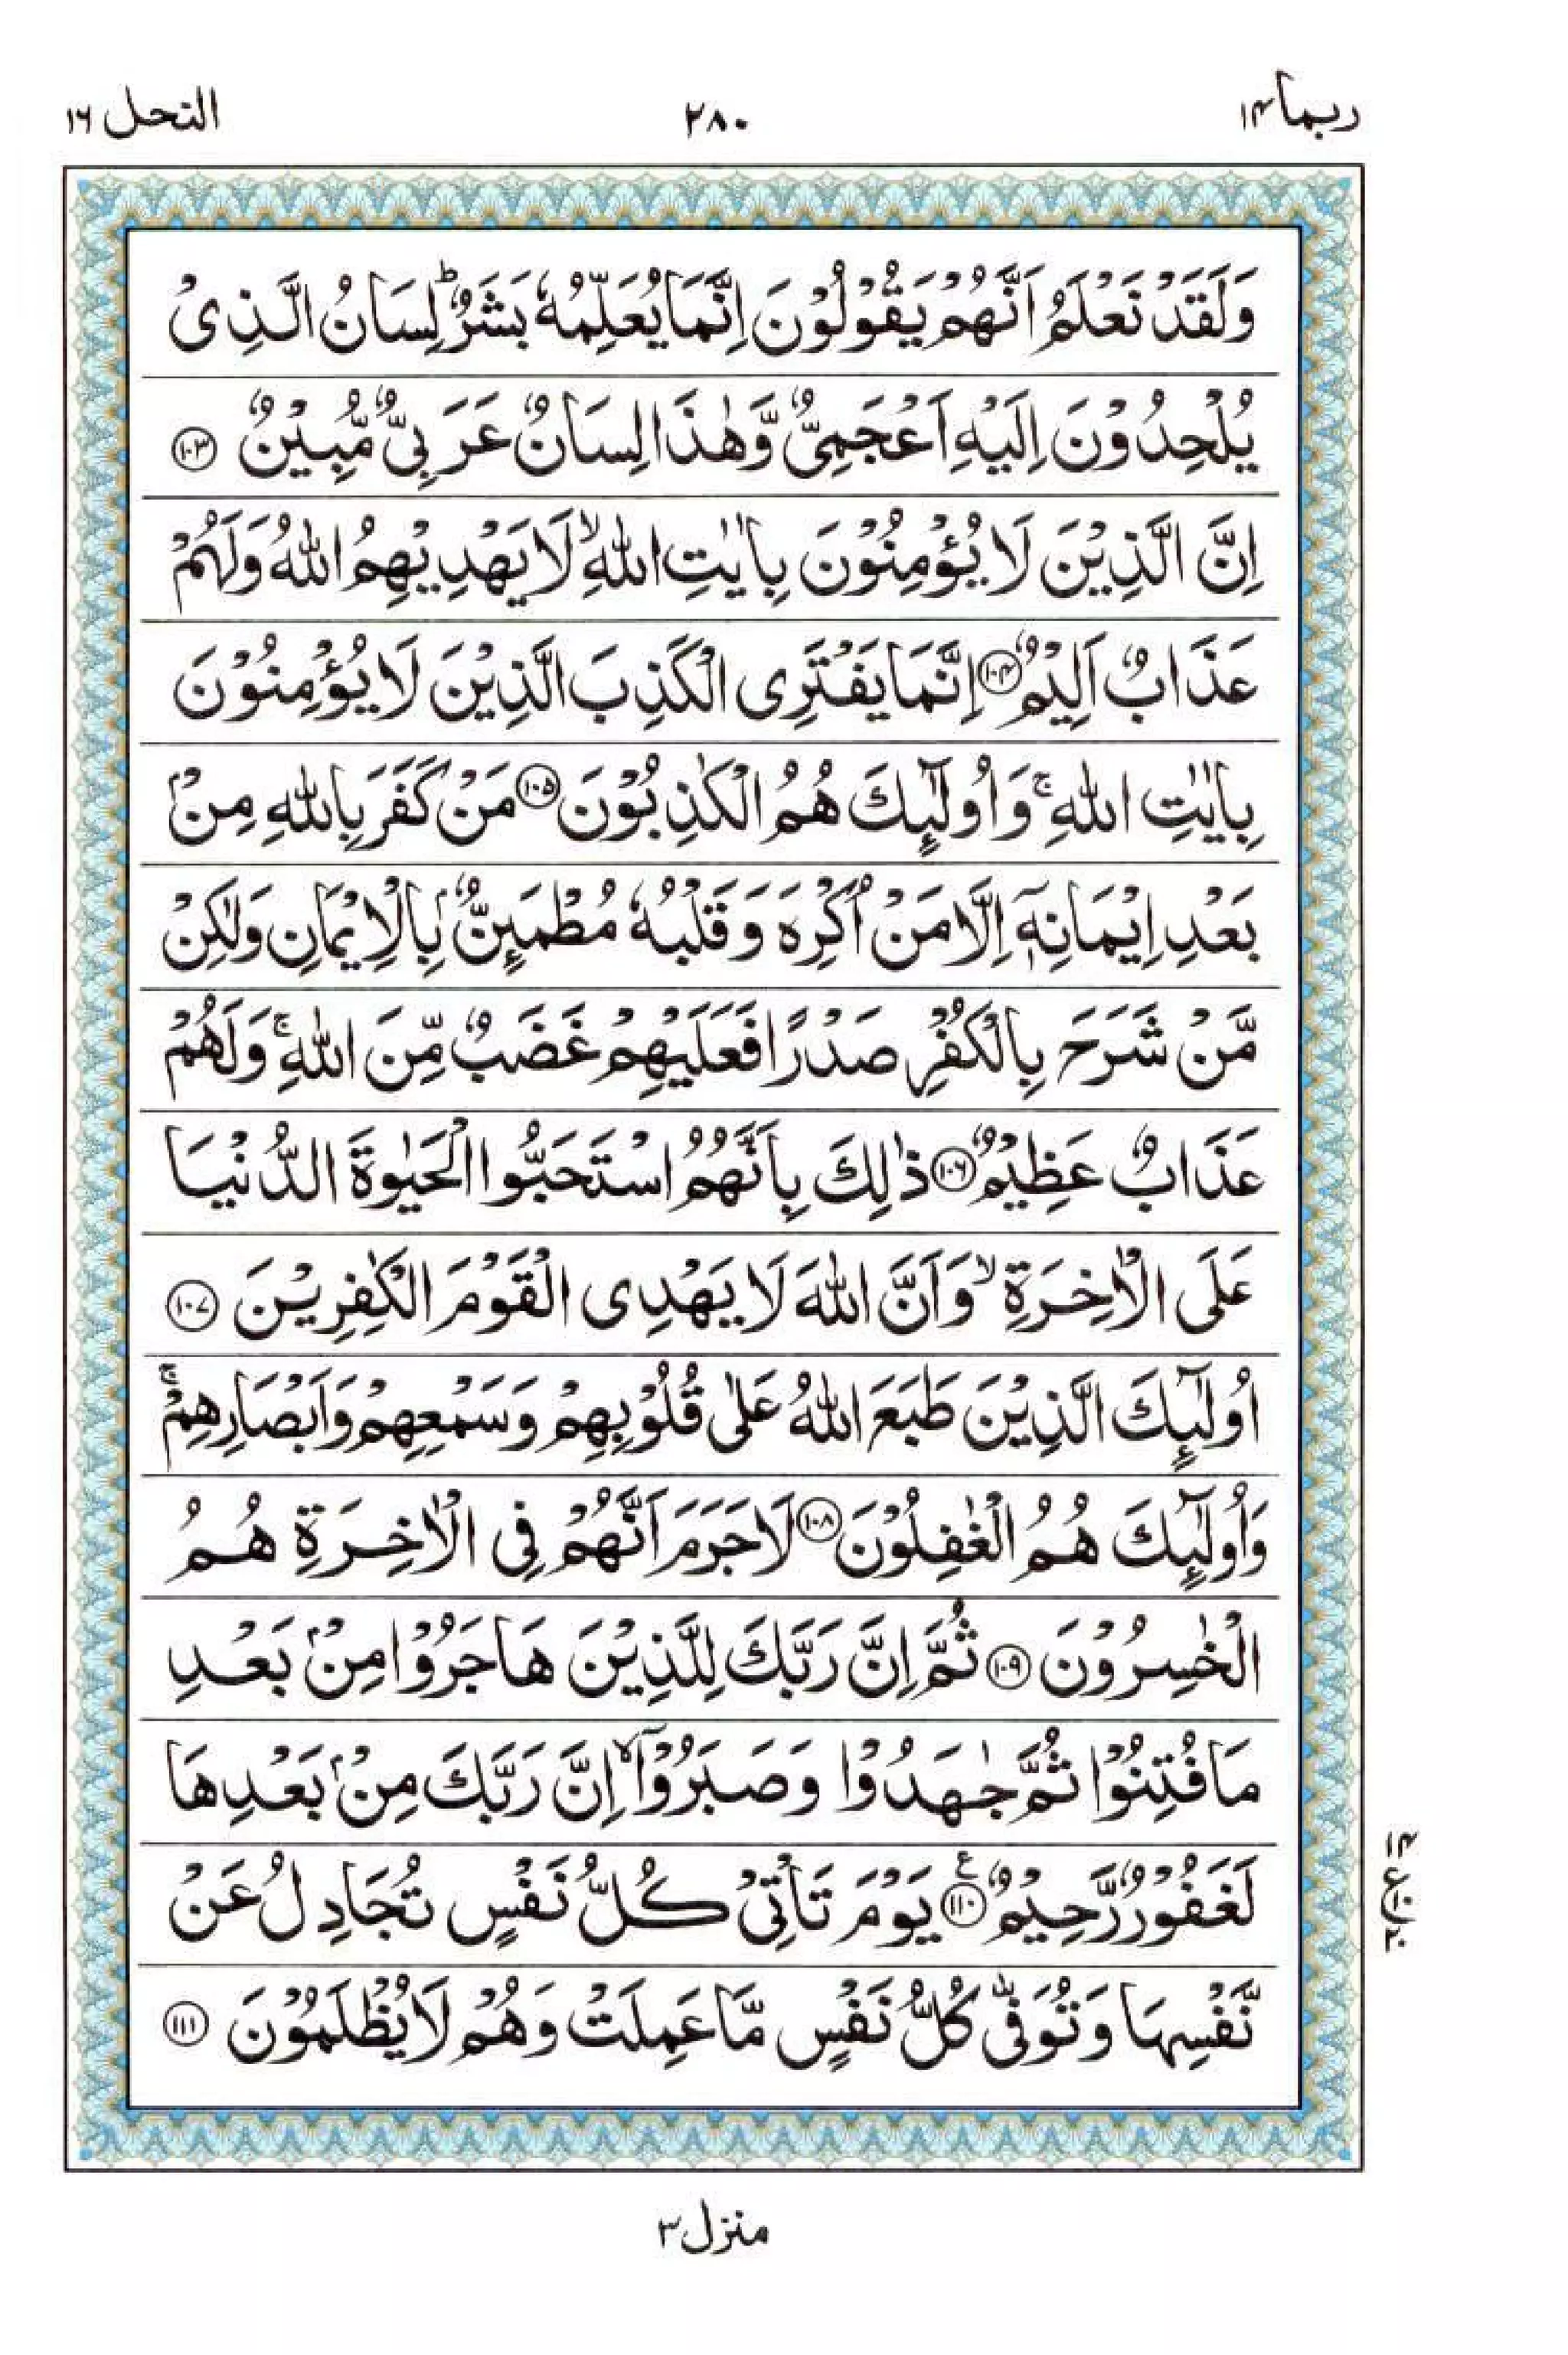 ربما ١٤
٢٨٠
النحل ١٦
وَلَقَدْ نَعْلَمُ اَنَّهُمْ يَقُوْلُوْنَ اِنَّمَا يُعَلِّمُهٗ بَشَرٌؕ لِسَانُ الَّذِیْ
يُلْحِدُوْنَ اِلَيْهِ اَعْجَمِیٌّ وَّهٰذَا لِسَانٌ عَرَبِیٌّ مُّبِيْنٌ ﴿١٠٣﴾
اِنَّ الَّذِيْنَ لَا يُؤْمِنُوْنَ بِاٰيٰتِ اللّٰهِۙ لَا يَهْدِيْهِمُ اللّٰهُ وَلَهُمْ
عَذَابٌ اَلِيْمٌ ﴿١٠٤﴾ اِنَّمَا يَفْتَرِی الْكَذِبَ الَّذِيْنَ لَا يُؤْمِنُوْنَ
بِاٰيٰتِ اللّٰهِۚ وَاُولٰٓئِكَ هُمُ الْكٰذِبُوْنَ ﴿١٠٥﴾ مَنْ كَفَرَ بِاللّٰهِ مِنْۢ
بَعْدِ اِيْمَانِهٖۤ اِلَّا مَنْ اُكْرِهَ وَقَلْبُهٗ مُطْمَئِنٌّۢ بِالْاِيْمَانِ وَلٰكِنْ
مَّنْ شَرَحَ بِالْكُفْرِ صَدْرًا فَعَلَيْهِمْ غَضَبٌ مِّنَ اللّٰهِۚ وَلَهُمْ
عَذَابٌ عَظِيْمٌ ﴿١٠٦﴾ ذٰلِكَ بِاَنَّهُمُ اسْتَحَبُّوا الْحَيٰوةَ الدُّنْيَا
عَلَی الْاٰخِرَةِۙ وَاَنَّ اللّٰهَ لَا يَهْدِی الْقَوْمَ الْكٰفِرِيْنَ ﴿١٠٧﴾
اُولٰٓئِكَ الَّذِيْنَ طَبَعَ اللّٰهُ عَلٰی قُلُوْبِهِمْ وَسَمْعِهِمْ وَاَبْصَارِهِمْۚ
وَاُولٰٓئِكَ هُمُ الْغٰفِلُوْنَ ﴿١٠٨﴾ لَا جَرَمَ اَنَّهُمْ فِی الْاٰخِرَةِ هُمُ
الْخٰسِرُوْنَ ﴿١٠٩﴾ ثُمَّ اِنَّ رَبَّكَ لِلَّذِيْنَ هَاجَرُوْا مِنْۢ بَعْدِ
مَا فُتِنُوْا ثُمَّ جٰهَدُوْا وَصَبَرُوْۤاۙ اِنَّ رَبَّكَ مِنْۢ بَعْدِهَا
لَغَفُوْرٌ رَّحِيْمٌ ﴿١١٠﴾ ع يَوْمَ تَاْتِیْ كُلُّ نَفْسٍ تُجَادِلُ عَنْ
نَّفْسِهَا وَتُوَفّٰی كُلُّ نَفْسٍ مَّا عَمِلَتْ وَهُمْ لَا يُظْلَمُوْنَ ﴿١١١﴾
منزل ٣